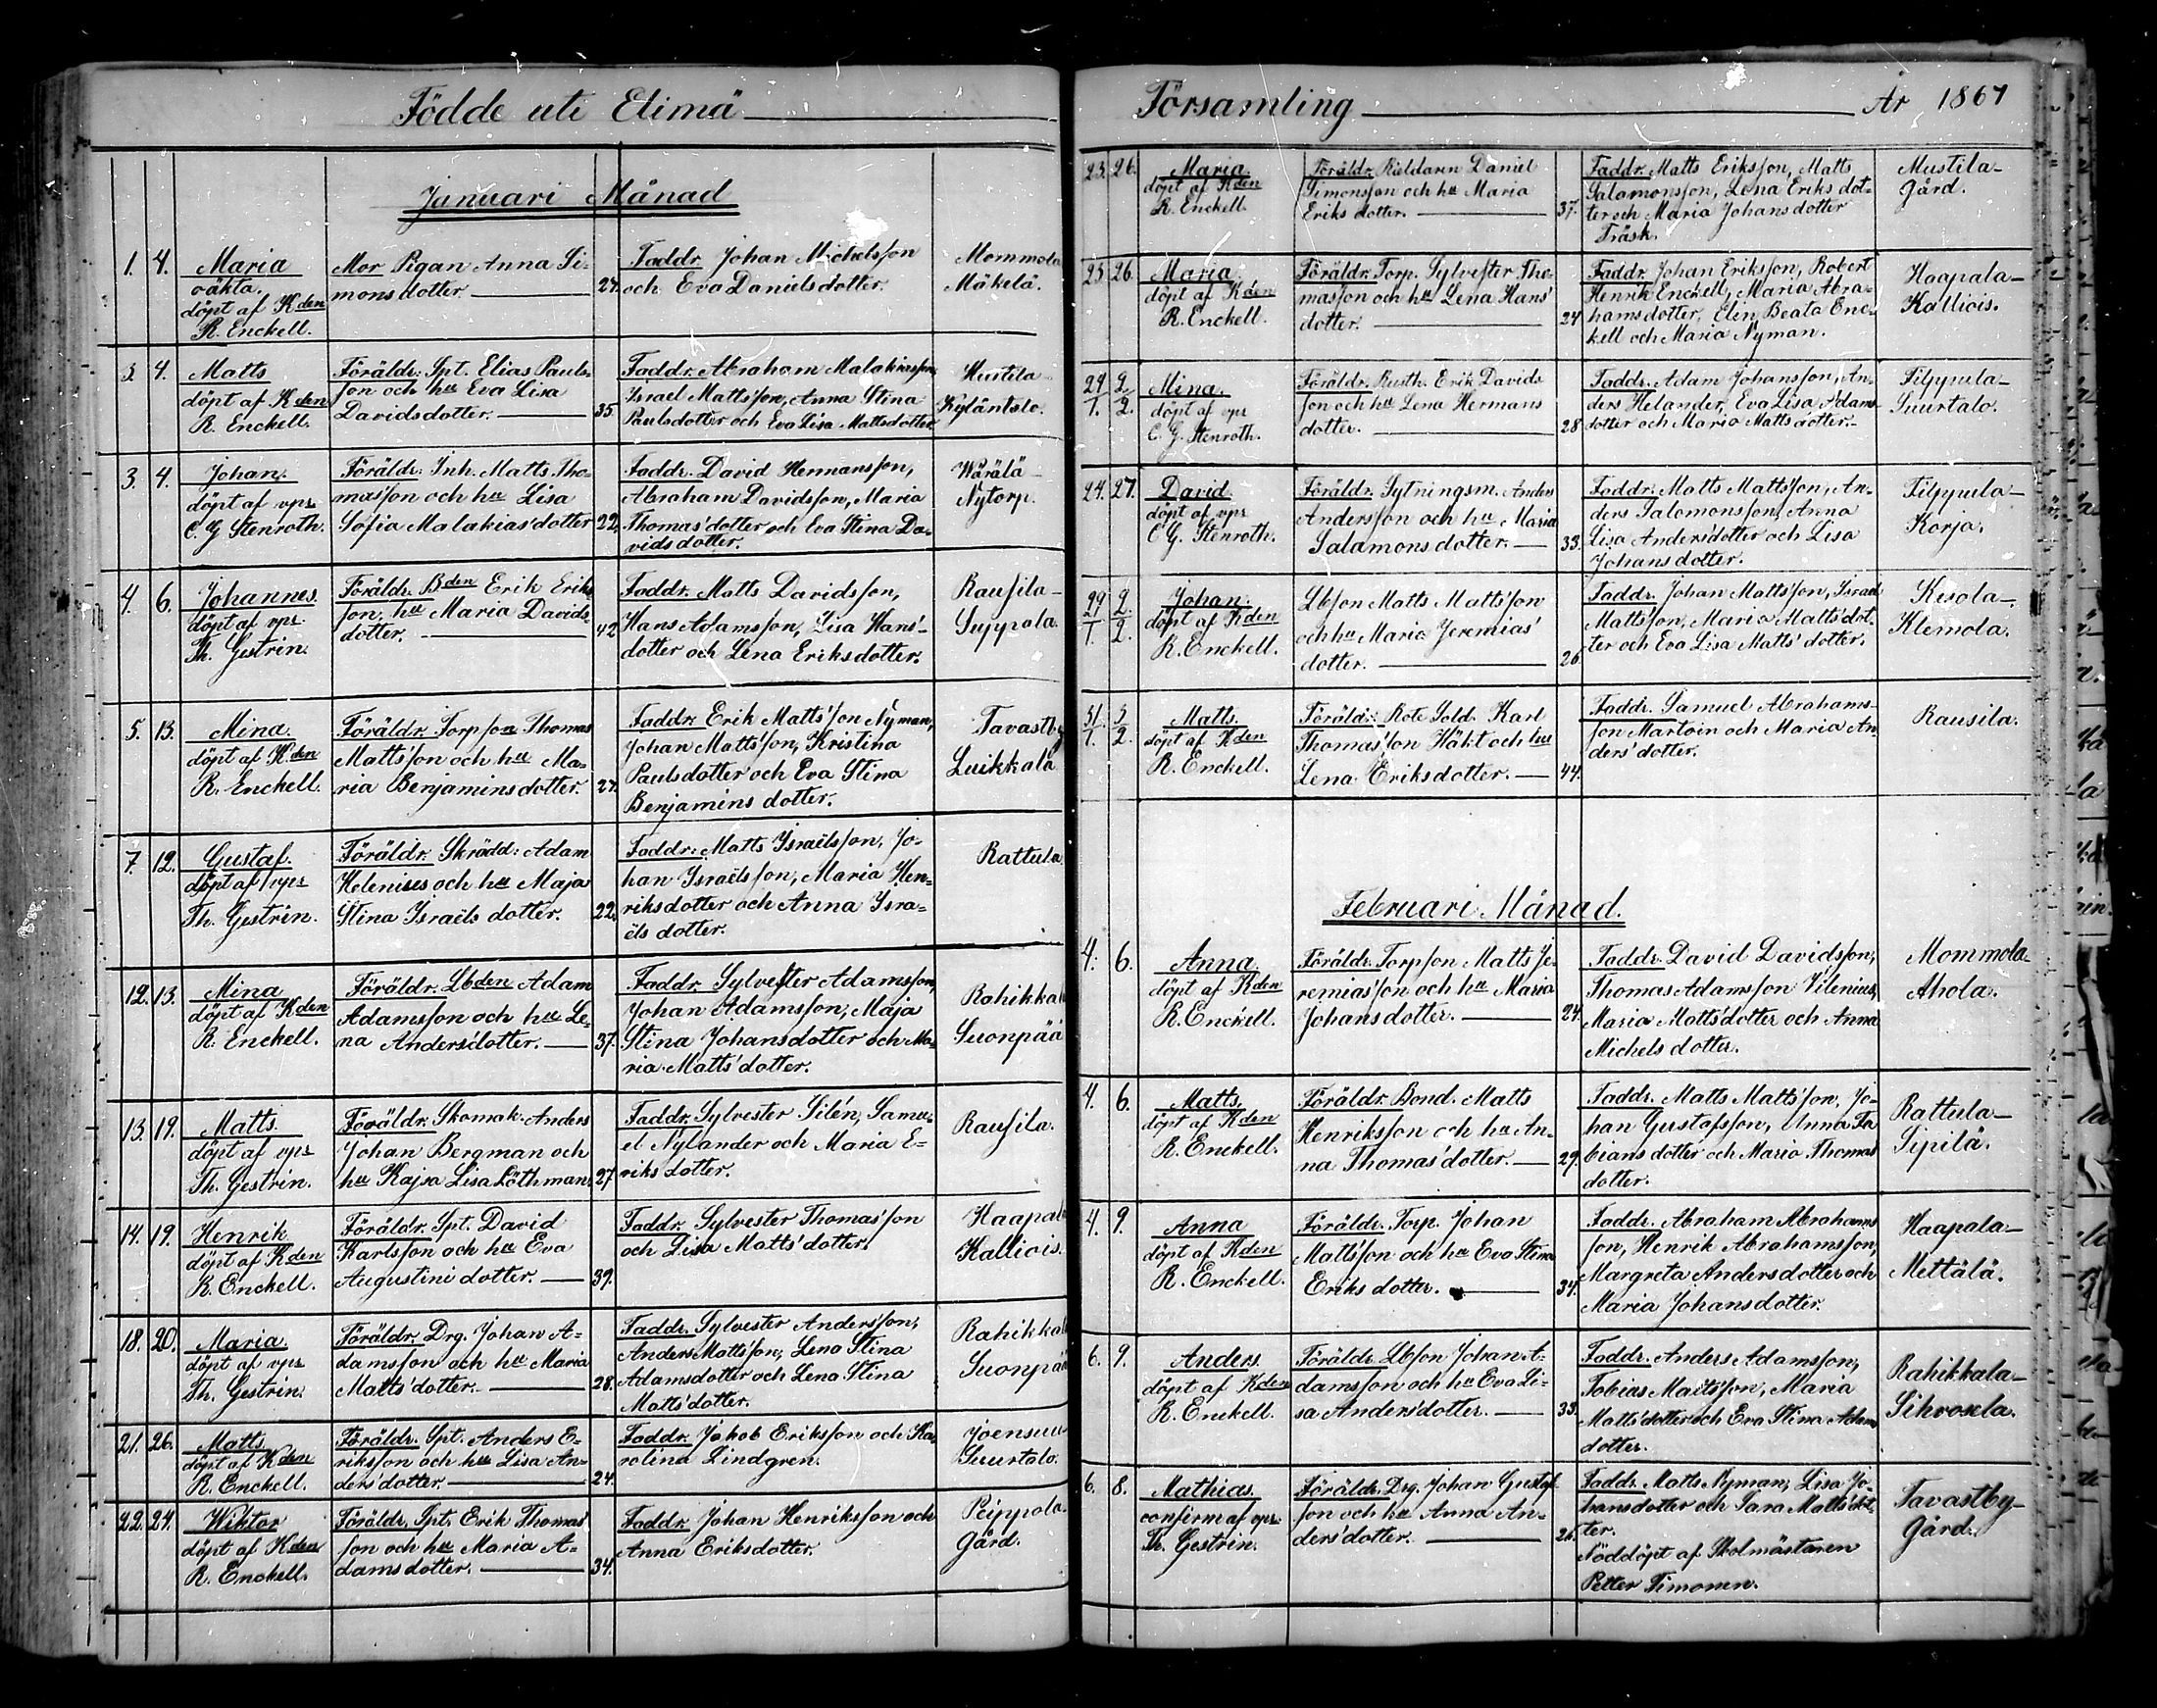 Födde uti Elimä
Januari Månad
1. 4. Maria Mor Pigan Anna Si- Faddr. Johan Michelsson Mommola
oäkta. monsdotter. 27. och Eva Danielsdotter. Mäkelä.
döpt af Kden
R. Enckell.
3. 4. Matts Föräldr. Spt. Elias Pauls- Faddr. Abraham Malakiasson, Mustila
döpt af Kden son och hu Eva Lisa Israel Mattsson, Anna Stina Kyläntalo.
R. Enckell. Davidsdotter. 35. Paulsdotter och Eva Lisa Mattsdotter.
3. 4. Johan. Föräldr. Inh. Matts Tho- Faddr. David Hermansson, Wärälä-
döpt af vprs masson och hu Lisa Abraham Davidsson, Maria Nytorp.
C. G. Stenroth. Sofia Malakias'dotter 22. Thomas'dotter och Eva Stina Da-
vidsdotter.
4. 6. Johannes. Föräldr. Bden Erik Eriks Faddr. Matts Davidsson, Rausila-
döpt af vprs son, hu Maria Davids Hans Adamsson, Lisa Hans'- Suppola.
Th. Gestrin. dotter. 42 dotter och Lena Eriksdotter.
5. 13. Mina. Föräldr. Torpson Thomas Faddr. Erik Matts'son Nyman, Tavastby
döpt af Kden Matts'son och hu Ma- Johan Matts'son, Kristina Luikkala
R. Enckell. ria Benjaminsdotter. 27. Paulsdotter och Eva Stina
Benjamins dotter.
7. 12. Gustaf. Föräldr. Skrädd: Adam Faddr: Matts Israëlsson, Jo- Rattula.
döpt af vprs Helenius och hu Maja han Israëlsson, Maria Hen-
Th. Gestrin. Stina Israëls dotter. 22. riksdotter och Anna Isra-
ëls dotter.
12. 13. Mina Föräldr. Lbden Adam Faddr. Sylvester Adamsson, Rahikkala
döpt af Kden Adamsson och hu Le- Johan Adamsson, Maja Suonpää
R. Enckell. na Anders'dotter. 37. Stina Johansdotter och Ma-
ria Matts'dotter.
13. 19. Matts. Föräldr. Skomak. Anders Faddr. Sylvester Silén, Samu- Rausila.
döpt af vprs Johan Bergman och el Nylander och Maria E-
Th. Gestrin. hu Kajsa Lisa Löthman 27. riks dotter.
14. 19. Henrik Föräldr. Spt. David Faddr. Sylvester Thomas'son Haapala
döpt af Kden Karlsson och hu Eva och Lisa Matts'dotter. Kalliois.
R. Enckell. Augustini dotter. 39.
18. 20. Maria. Föräldr. Drg. Johan A- Faddr. Sylvester Andersson, Rahikkala
döpt af vprs damsson och hu Maria Anders Matts'son, Lena Stina Suonpää
Th. Gestrin. Matts'dotter. 28. Adamsdotter och Lena Stina
Matts'dotter.
21. 26. Matts. Föräldr. Spt. Anders E- Faddr. Jakob Eriksson och Ka- Joensuu-
döpt af Kden riksson och hu Lisa An- rolina Lindgren. Suurtalo.
R. Enckell. ders'dotter. 24.
22. 24. Wiktor Föräldr. Spt. Erik Thomas' Faddr. Johan Henriksson och Peippola-
döpt af Kden son och hu Maria A- Anna Eriksdotter. Gård.
R. Enckell. damsdotter. 34.
Församling År 1867
23. 26. Maria. Föräldr. Daniel Faddr. Matts Eriksson, Matts Mustila-
döpt af Kden Simonsson och hu Maria Salamonsson, Lena Eriks dot- Gård.
R. Enckell. Eriks dotter. 37. ter och Maria Johansdotter
Träsk.
25. 26. Maria. Föräldr. Torp. Sylvester Tho- Faddr. Johan Eriksson, Robert Haapala-
döpt af Kden masson och hu Lena Hans' Henrik Enckell, Maria Abra- Kalliois.
R. Enckell. dotter. 24 hamsdotter, Elin Beata Enc-
kell och Maria Nyman.
29/1. 2/2. Mina. Föräldr. Rusth. Erik Davids Faddr. Adam Johansson, An- Filppula-
döpt af vprs son och hu Lena Hermans ders Helander, Eva Lisa Adams Suurtalo.
C. G. Stenroth. dotter. 28 dotter och Maria Matts dotter.
24. 27. David. Föräldr. Sytningsm. Anders Faddr. Matts Mattsson, An- Filppula-
döpt af vprs Andersson och hu Maria ders Salomonsson, Anna Korja.
C. G. Stenroth. Salamons dotter. 33. Lisa Anders'dotter och Lisa
Johansdotter.
29/1. 2/2. Johan. Lbson Matts Matts'son Faddr. Johan Matts'son, Israel Kesola-
döpt af Kden och hu Maria Jeremias' Matts'son, Maria Matts'dot- Klemola.
R. Enckell. dotter. 26. ter och Eva Lisa Matts' dotter.
31/1. 3/2. Matts. Föräldr. Rote Sold. Karl Faddr. Samuel Abrahams- Rausila.
döpt af Kden Thomas'son Häkt och hu son Martoin och Maria An-
R. Enckell. Lena Eriksdotter. 44. ders' dotter.
Februari Månad.
4. 6. Anna. Föräldr. Torpson Matts Je- Faddr. David Davidsson, Mommola-
döpt af Kden remias'son och hu Maria Thomas Adamsson Vilenius, Ahola.
R. Enckell. Johansdotter. 24. Maria Matts'dotter och Anna
Michels dotter.
4. 6. Matts. Föräldr. Bond. Matts Faddr. Matts Matts'son, Jo- Rattula-
döpt af Kden Henriksson och hu An- han Gustafsson, Anna Fa Sipilä.
R. Enckell. na Thomas'dotter. 29. bians dotter och Maria Thomas
dotter.
4. 9. Anna Föräldr. Torp. Johan Faddr. Abraham Abrahams Haapala-
döpt af Kden Matts'son och hu Eva Stina son, Henrik Abrahamsson, Mettälä.
R. Enckell. Eriks dotter. 34. Margreta Andersdotter och
Maria Johansdotter.
6. 9. Anders. Föräldr. Lbson Johan A- Faddr. Anders Adamsson, Rahikkala-
döpt af Kden damsson och hu Eva Li- Tobias Matts'son, Maria Sihvola.
R. Enckell. sa Anders'dotter. 33. Matts'dotter och Eva Stina Adams
dotter.
6. 8. Mathias. Föräldr. Drg. Johan Gustaf Faddr. Matts Nyman, Lisa Jo- Tavastby-
confirm af vprs son och hu Anna An- hansdotter och Sara Matts'dot- Gård.
Th. Gestrin. ders'dotter. 26. ter.
Nöddöpt af Skolmästaren
Petter Timonen.